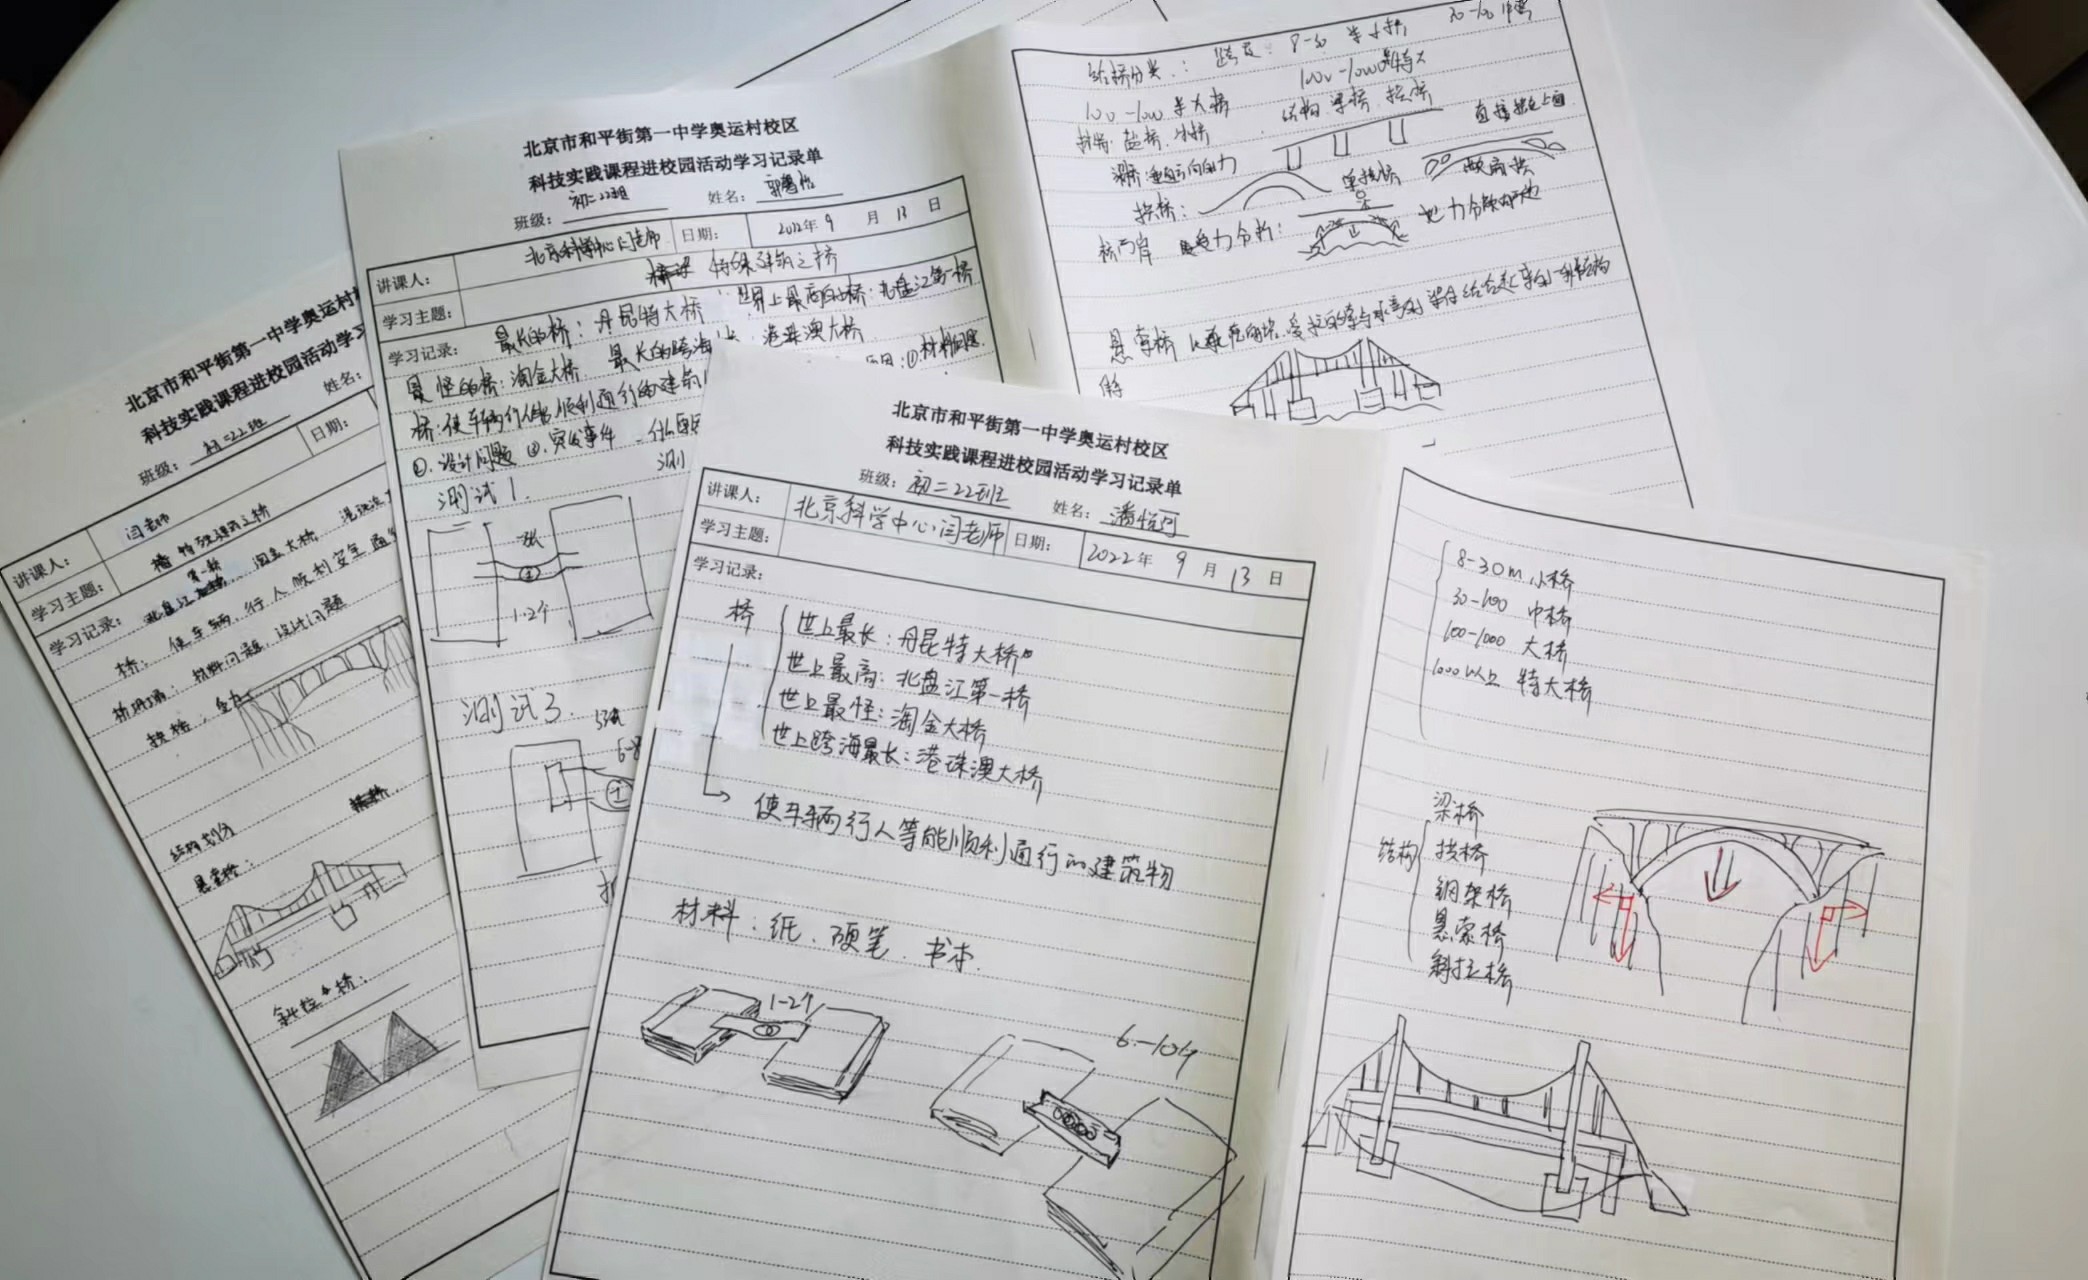 北京市和平街第一中学奥运村校区
科技实践课程进校园活动学习记录单
班级：初二22班 姓名：潘悦可
讲课人： 北京科学中心闫老师 日期： 2022年9月13日
学习主题：
学习记录：
桥
世上最长：丹昆特大桥
世上最高：北盘江第一桥
世上最怪：淘金大桥
世上跨海最长：港珠澳大桥
使车辆行人等能顺利通行的建筑物
材料：纸、硬笔、书本.
1-2个
6-10个
8-30m 小桥
30-100 中桥
100-1000 大桥
1000以上 特大桥
结构
梁桥
拱桥
钢架桥
悬索桥
斜拉桥
北京市和平街第一中学奥运村校区
科技实践课程进校园活动学习记录单
班级：初二22班 姓名：郭
讲课人： 北京科学中心闫老师 日期： 2022年9月13日
学习主题： 特殊建筑之桥
学习记录： 最长的桥：丹昆特大桥 世界上最高的桥：北盘江第一桥
最怪的桥：淘金大桥 最长的跨海 港珠澳大桥
桥：使车辆行人能顺利通行的建筑 ①材料问题
②.设计问题 ③.突发事件
测试1.
1-2个
测试3.
给桥分类：跨度：8-30 米小桥, 30-100 中桥
100-1000 米大桥 1000特大
结构 梁桥 拱桥
梁桥：垂直方向的力
拱桥： 单拱桥
桥两岸 受力分析：
悬索桥
北京市和平街第一中学奥运村
科技实践课程进校园活动学习
班级：初二22班 姓名：
讲课人： 闫老师 日期：
学习主题： 特殊建筑之桥
学习记录： 北盘江第一桥 淘金大桥 港珠澳
桥：使车辆,行人顺利安全通
桥坍塌：材料问题,设计问题
拱桥,
结构划分
悬索桥：
斜拉桥：